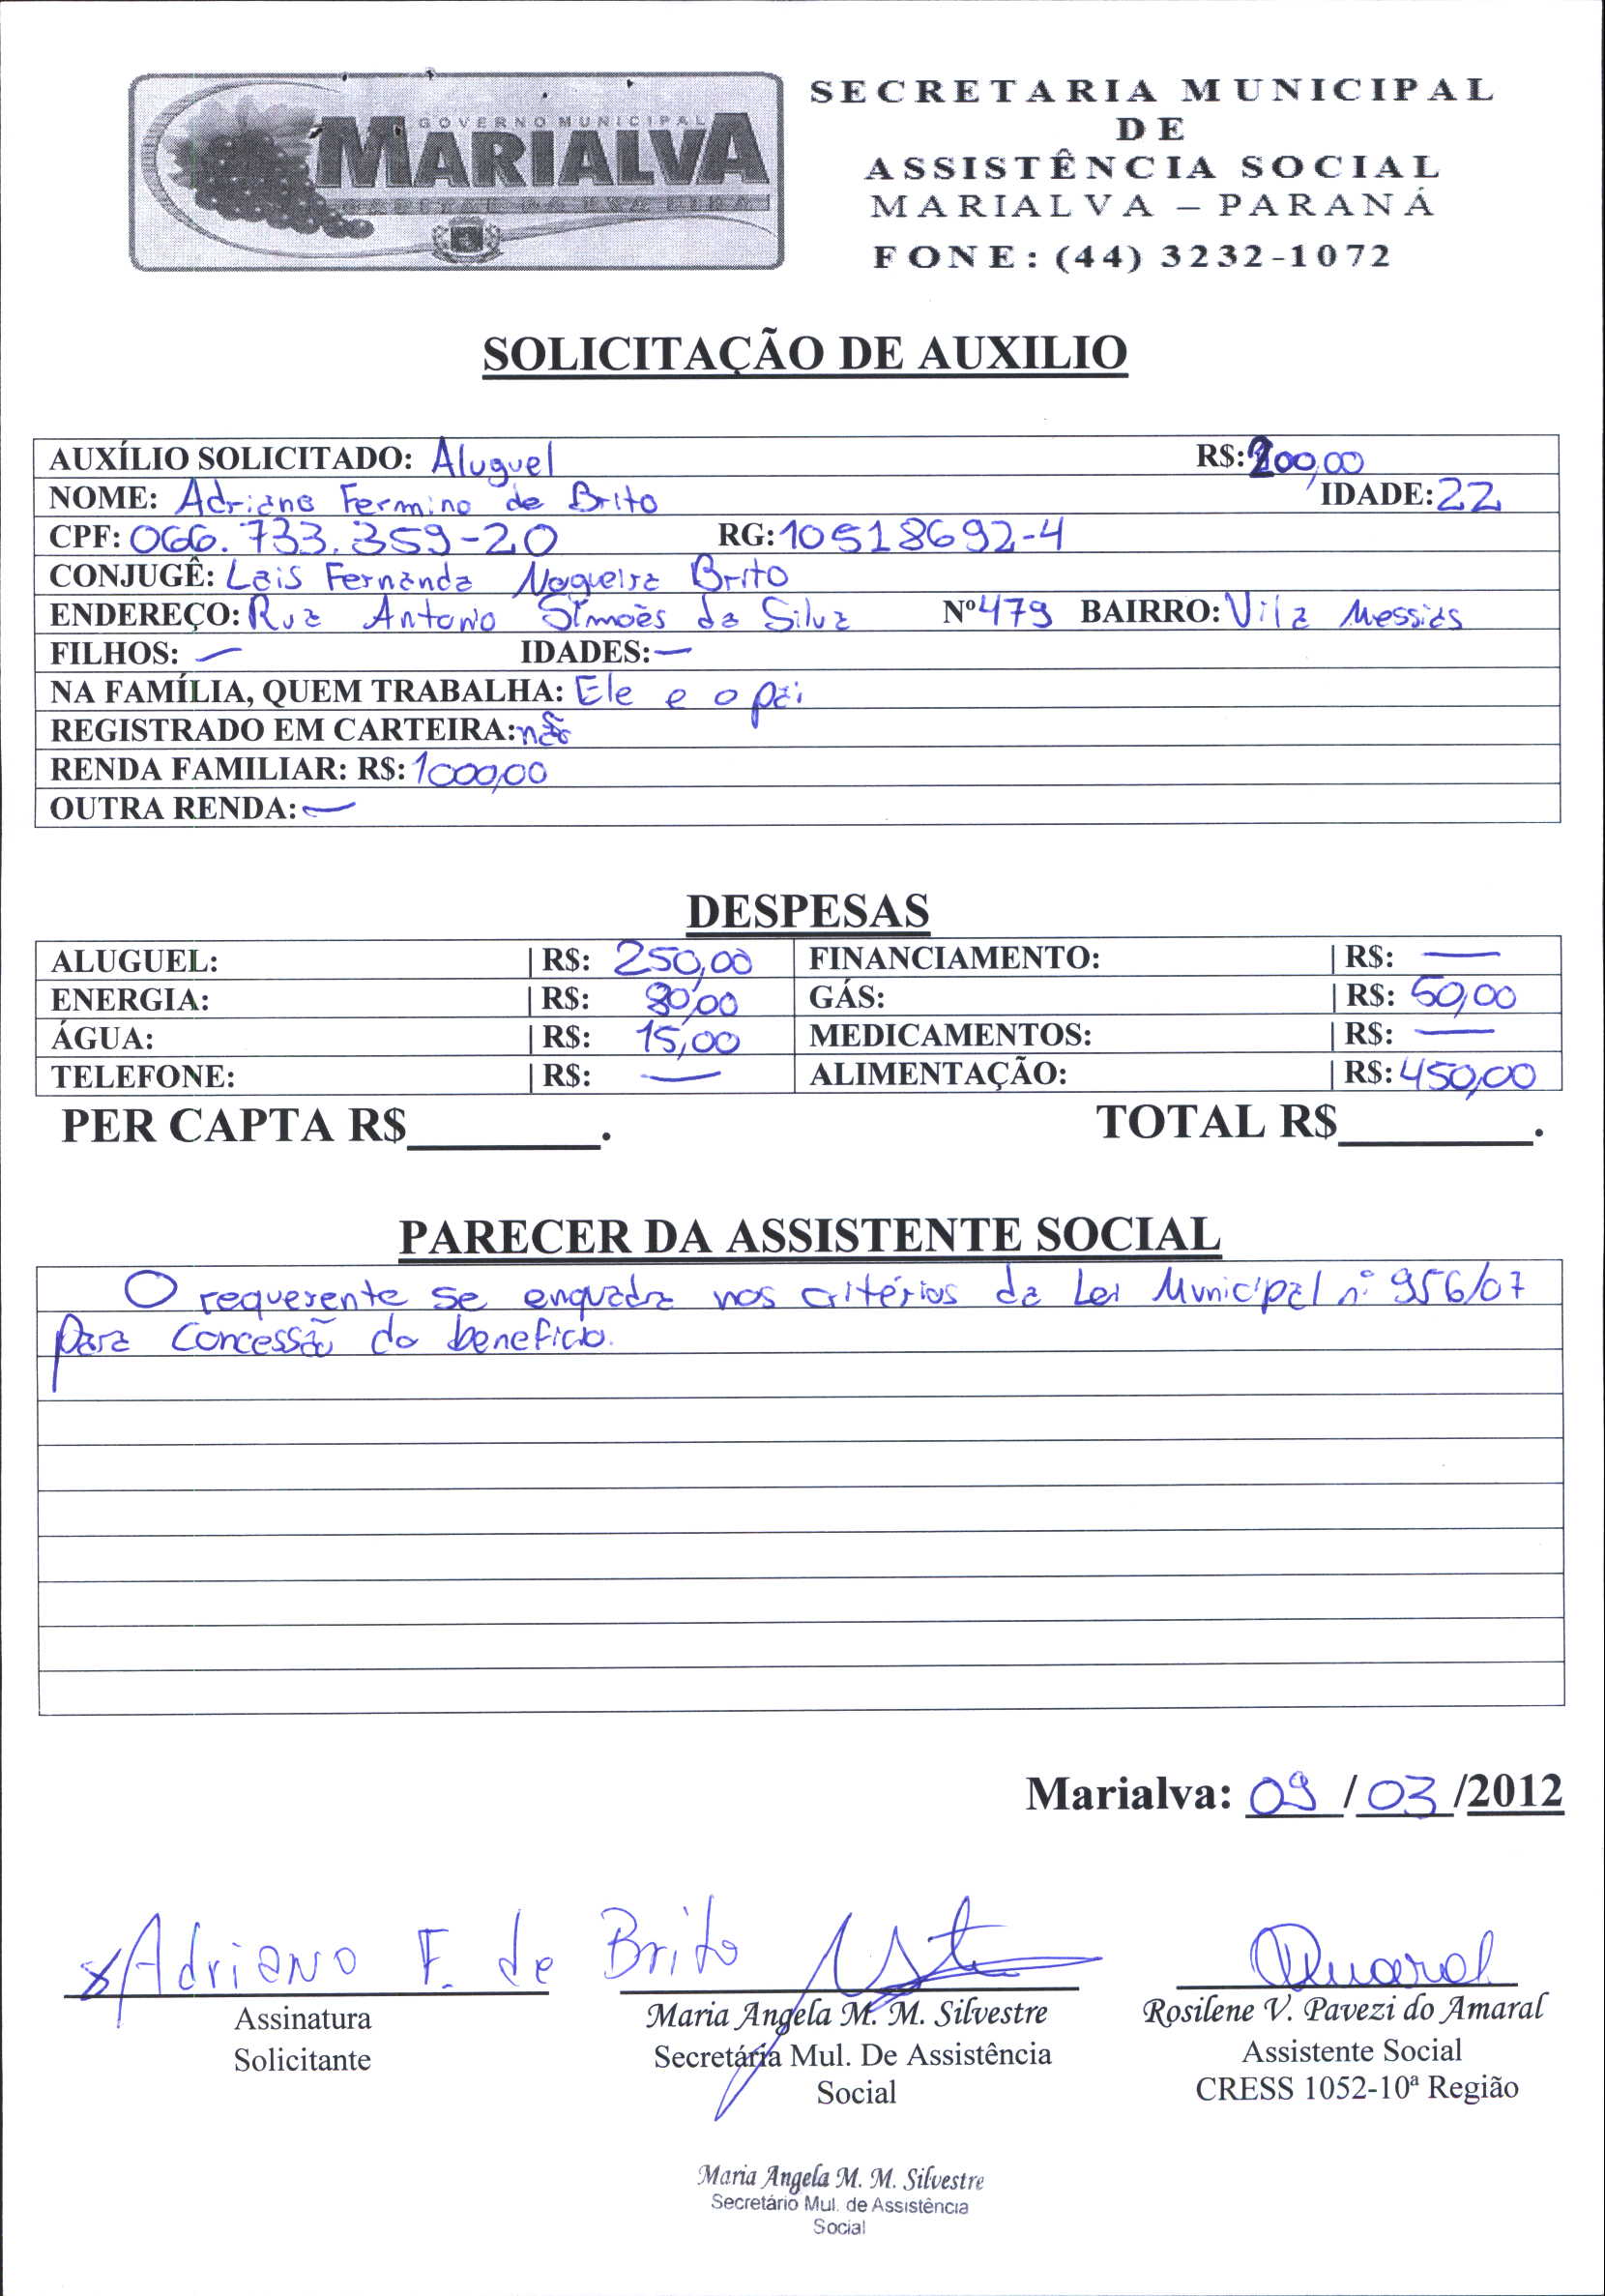 GOVERNO MUNICIPAL
MARIALVA
CAPITAL DA UVA FINA
SECRETARIA MUNICIPAL
DE
ASSISTÊNCIA SOCIAL
MARIALVA – PARANÁ
FONE: (44) 3232-1072
SOLICITAÇÃO DE AUXILIO
AUXÍLIO SOLICITADO: Aluguel R$: 200,00
NOME: Adriano Fermino de Brito IDADE: 22
CPF: 066.733.359-20 RG: 10518692-4
CONJUGÊ: Lais Fernanda Nogueira Brito
ENDEREÇO: Rua Antonio Simoès da Silva Nº 479 BAIRRO: Vila Messias
FILHOS: — IDADES: —
NA FAMÍLIA, QUEM TRABALHA: Ele e o pai
REGISTRADO EM CARTEIRA: não
RENDA FAMILIAR: R$: 1000,00
OUTRA RENDA: —
DESPESAS
ALUGUEL: | R$: 250,00 FINANCIAMENTO: | R$: —
ENERGIA: | R$: 80,00 GÁS: | R$: 50,00
ÁGUA: | R$: 15,00 MEDICAMENTOS: | R$: —
TELEFONE: | R$: — ALIMENTAÇÃO: | R$: 450,00
PER CAPTA R$________. TOTAL R$________.
PARECER DA ASSISTENTE SOCIAL
O requerente se enquadra nos critérios da Lei Municipal nº 956/07
para concessão do beneficio.
Marialva: 09 / 03 /2012
x Adriano F. de Brito
Assinatura Maria Angela M. M. Silvestre Rosilene V. Pavezi do Amaral
Solicitante Secretária Mul. De Assistência Assistente Social
Social CRESS 1052-10ª Região
Maria Angela M. M. Silvestre
Secretário Mul. de Assistência
Social